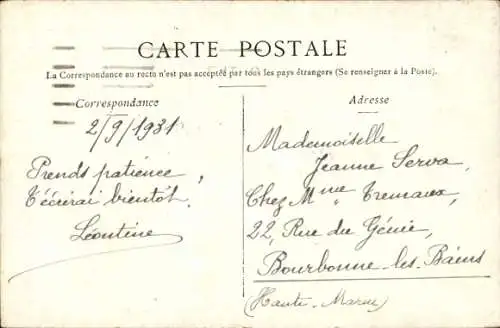 CARTE POSTALE
La Correspondance au recto n'est pas acceptée par tous les pays étrangers (Se renseigner à la Poste).
Correspondance
2/9/1931
Prends patience,
t'écrirai bientôt.
Léontine
Adresse
Mademoiselle
Jeanne Serva
Chez Mme Tremaux,
22, Rue du Génie,
Bourbonne-les-Bains
(Haute-Marne)